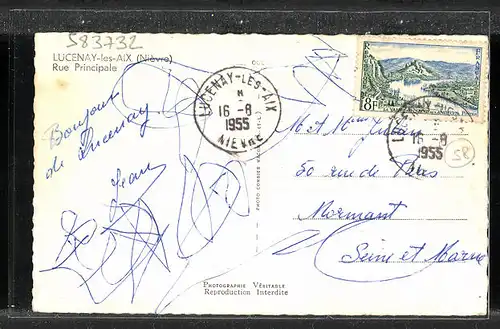 583732
LUCENAY-les-AIX (Nièvre)
Rue Principale
Bonjour
de Lucenay
Jean
LUCENAY-LÈS-AIX
16 -8
1955
NIEVRE
18F
16 -8
1955
M et Mme
50 rue de Paris
Mormant
Seine et Marne
PHOTOGRAPHIE VÉRITABLE
Reproduction Interdite